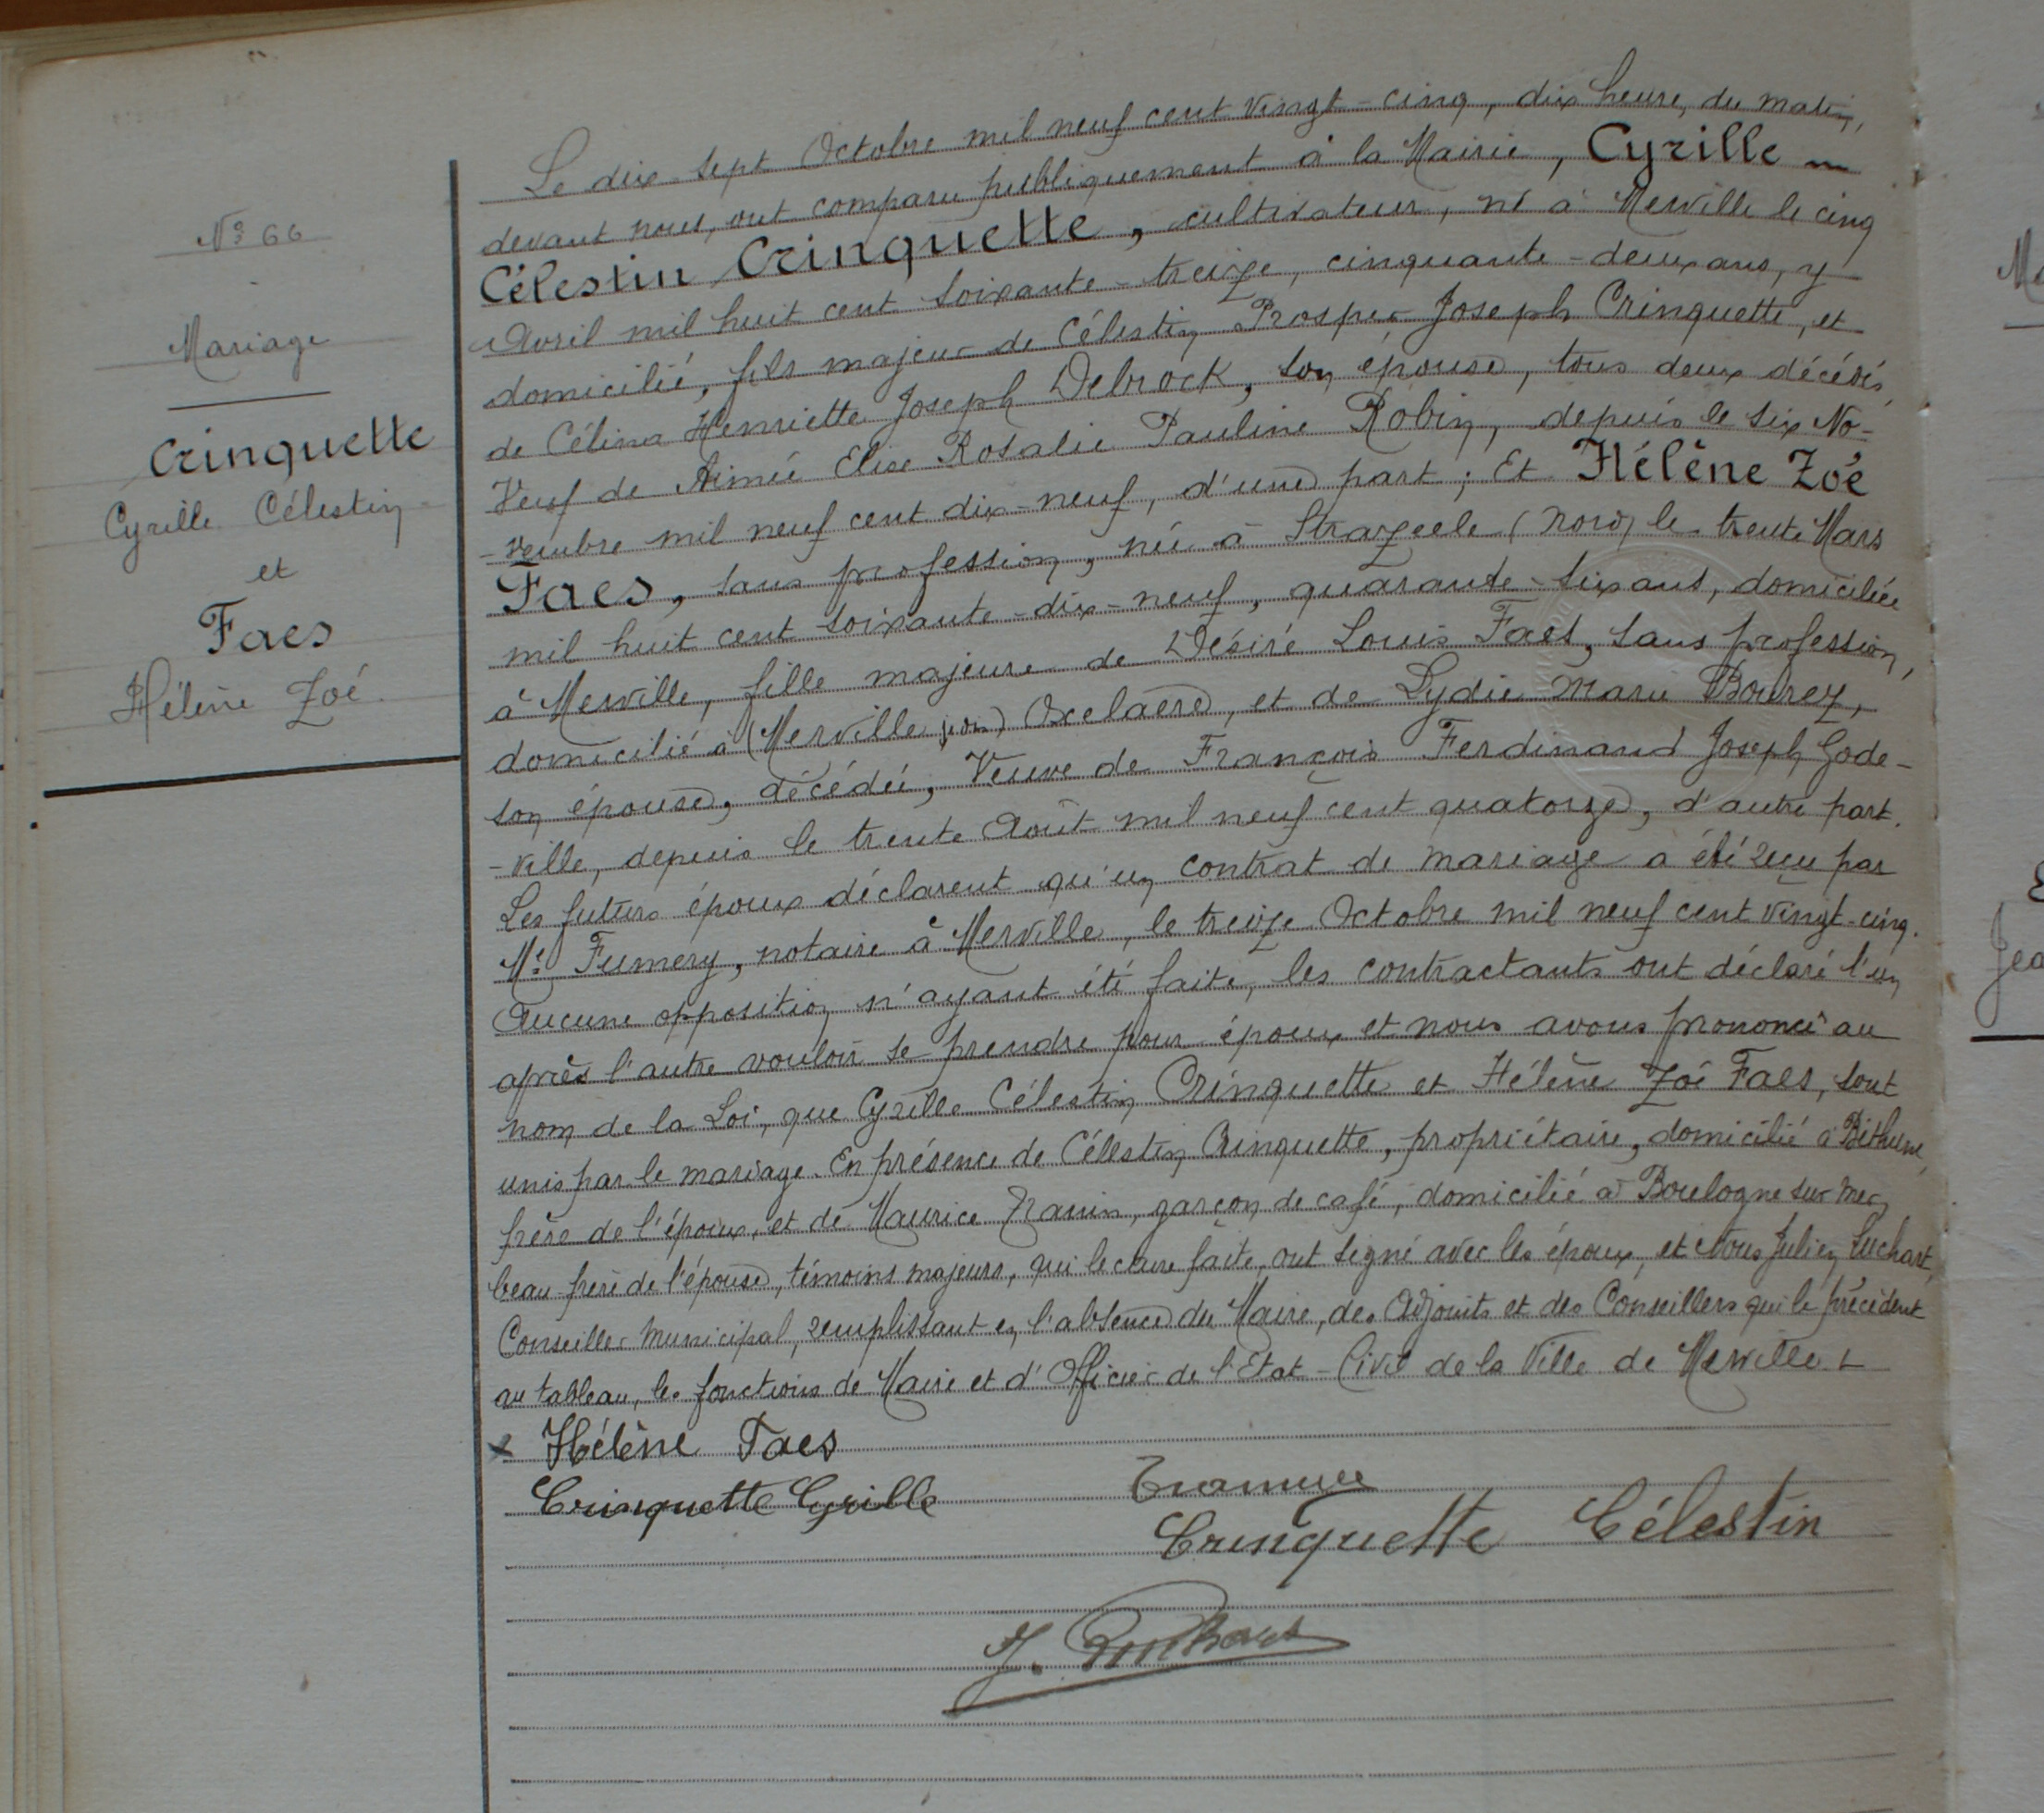 N° 66
Mariage
Crinquette
Cyrille Célestin
et
Faes
Hélène Zoé
Le dix-sept Octobre mil neuf cent vingt-cinq, dix heure, du matin,
devant nous, ont comparu publiquement à la Mairie, Cyrille
Célestin Crinquette, cultivateur, né à Merville le cinq
Avril mil huit cent soixante-treize, cinquante-deux ans, y
domicilié, fils majeur de Célestin Prosper Joseph Crinquette, et
de Célina Henriette Joseph Debrock, son épouse, tous deux décédés,
Veuf de Aimée Elise Rosalie Pauline Robin, depuis le six No-
-vembre mil neuf cent dix-neuf, d'une part; Et Hélène Zoé
Faes, sans profession, née à Strazeele (Nord) le trente Mars
mil huit cent soixante-dix-neuf, quarante-six ans, domiciliée
à Merville, fille majeure de Désiré Louis Faes, sans profession,
domicilié à (Merville) Oxelaere, et de Lydie Marie Bourez,
son épouse, décédée, Veuve de François Ferdinand Joseph Gode-
-ville, depuis le trente Août mil neuf cent quatorze, d'autre part.
Les futurs époux déclarent qu'un contrat de mariage a été reçu par
Me Fumery, notaire à Merville, le treize Octobre mil neuf cent vingt-cinq.
Aucune opposition n'ayant été faite, les contractants ont déclaré l'un
après l'autre vouloir se prendre pour époux et nous avons prononcé au
nom de la Loi, que Cyrille Célestin Crinquette et Hélène Zoé Faes, sont
unis par le mariage. En présence de Célestin Crinquette, propriétaire, domicilié à Béthune,
frère de l'époux, et de Maurice Tranin, garçon de café, domicilié à Boulogne sur Mer,
beau-frère de l'épouse, témoins majeurs, qui lecture faite, ont signé avec les époux, et Nous Julien
Conseiller Municipal, remplissant en l'absence du Maire, des Adjoints et des Conseillers qui le précèdent
au tableau, les fonctions de Maire et d'Officier de l'Etat-Civil de la Ville de Merville
x Hélène Faes
Crinquette Cyrille
Crinquette Célestin
J.